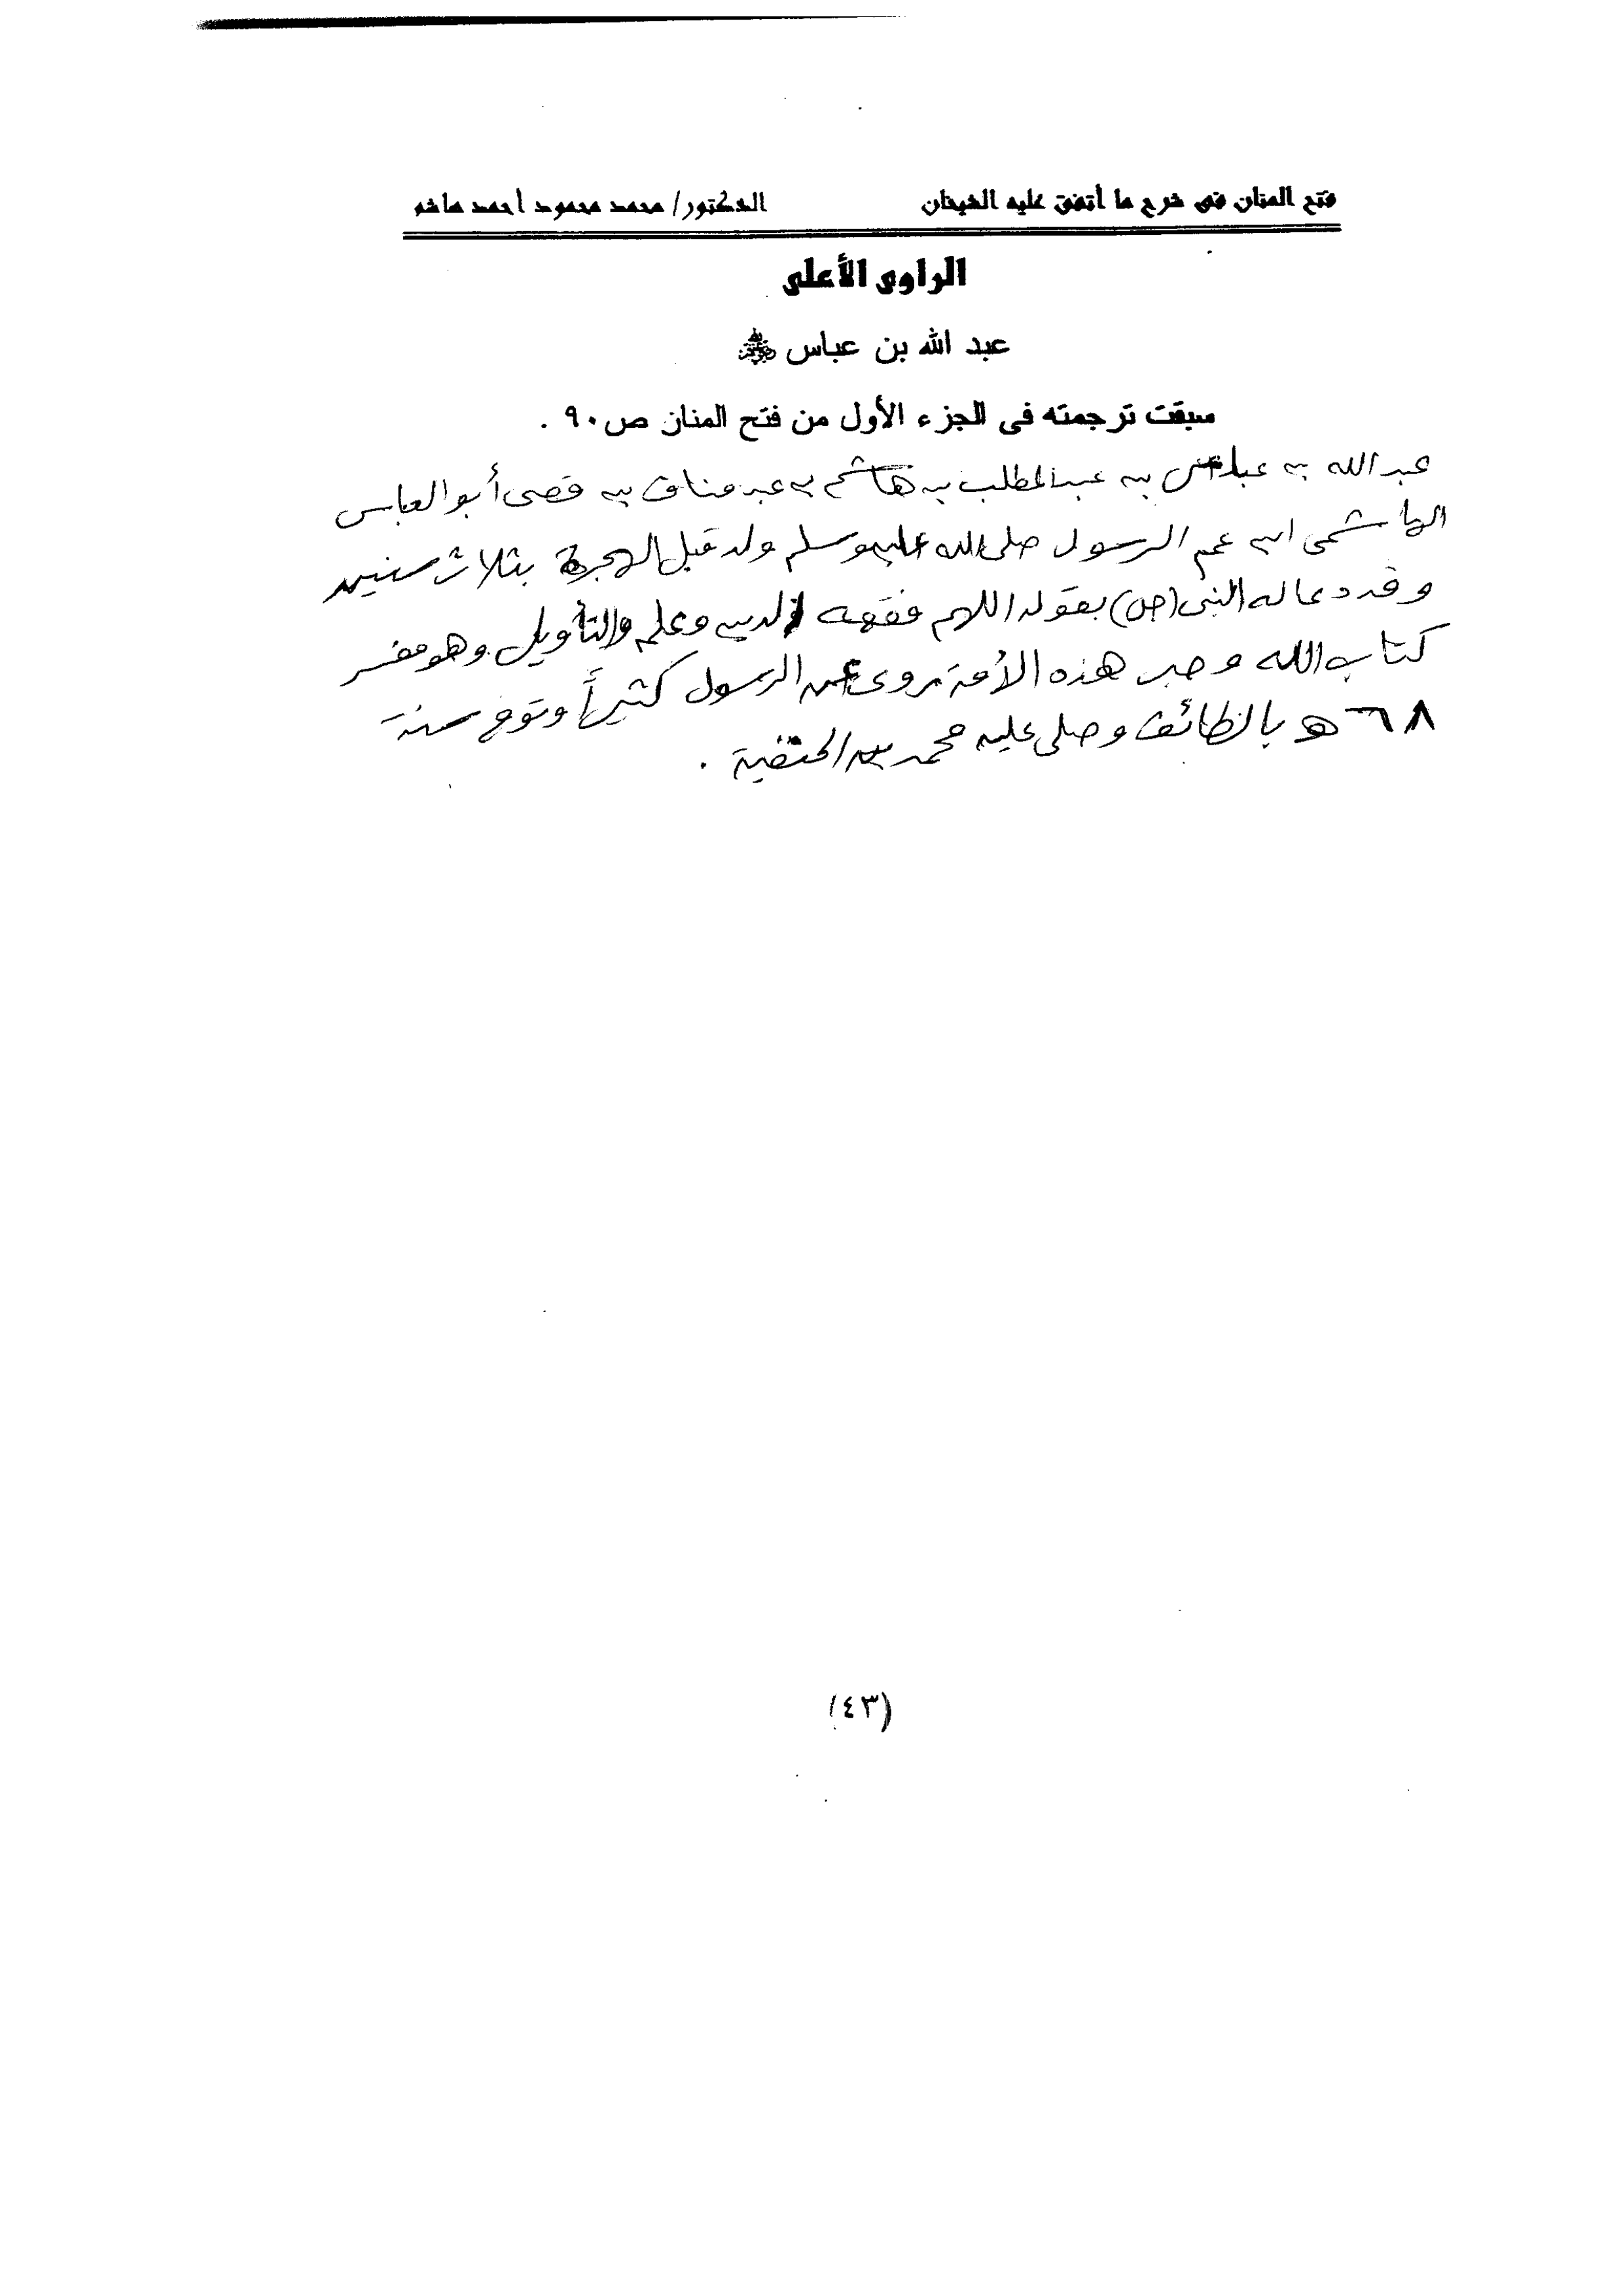 فتح المنان فى شرح ما أتفق عليه الشيخان الدكتور/ محمد محمود أحمد هاشم
الراوى الأعلى
عبد الله بن عباس رضي الله عنه
سبقت ترجمته فى الجزء الأول من فتح المنان ص٩٠ .
عبد الله بن عباس بن عبد المطلب بن هاشم بن عبد مناف بن قصى أبو العباس
الهاشمى ابن عم الرسول صلى الله عليه وسلم ولد قبل الهجرة بثلاث سنين
وقد دعا له النبى (ص) بقوله اللهم فقهه فى الدين وعلمه التأويل وهو مفسر
كتاب الله وحبر هذه الأمة روى عن الرسول كثيراً وتوفى سنة
٦٨ هـ بالطائف وصلى عليه محمد بن الحنفية .
(٤٣)